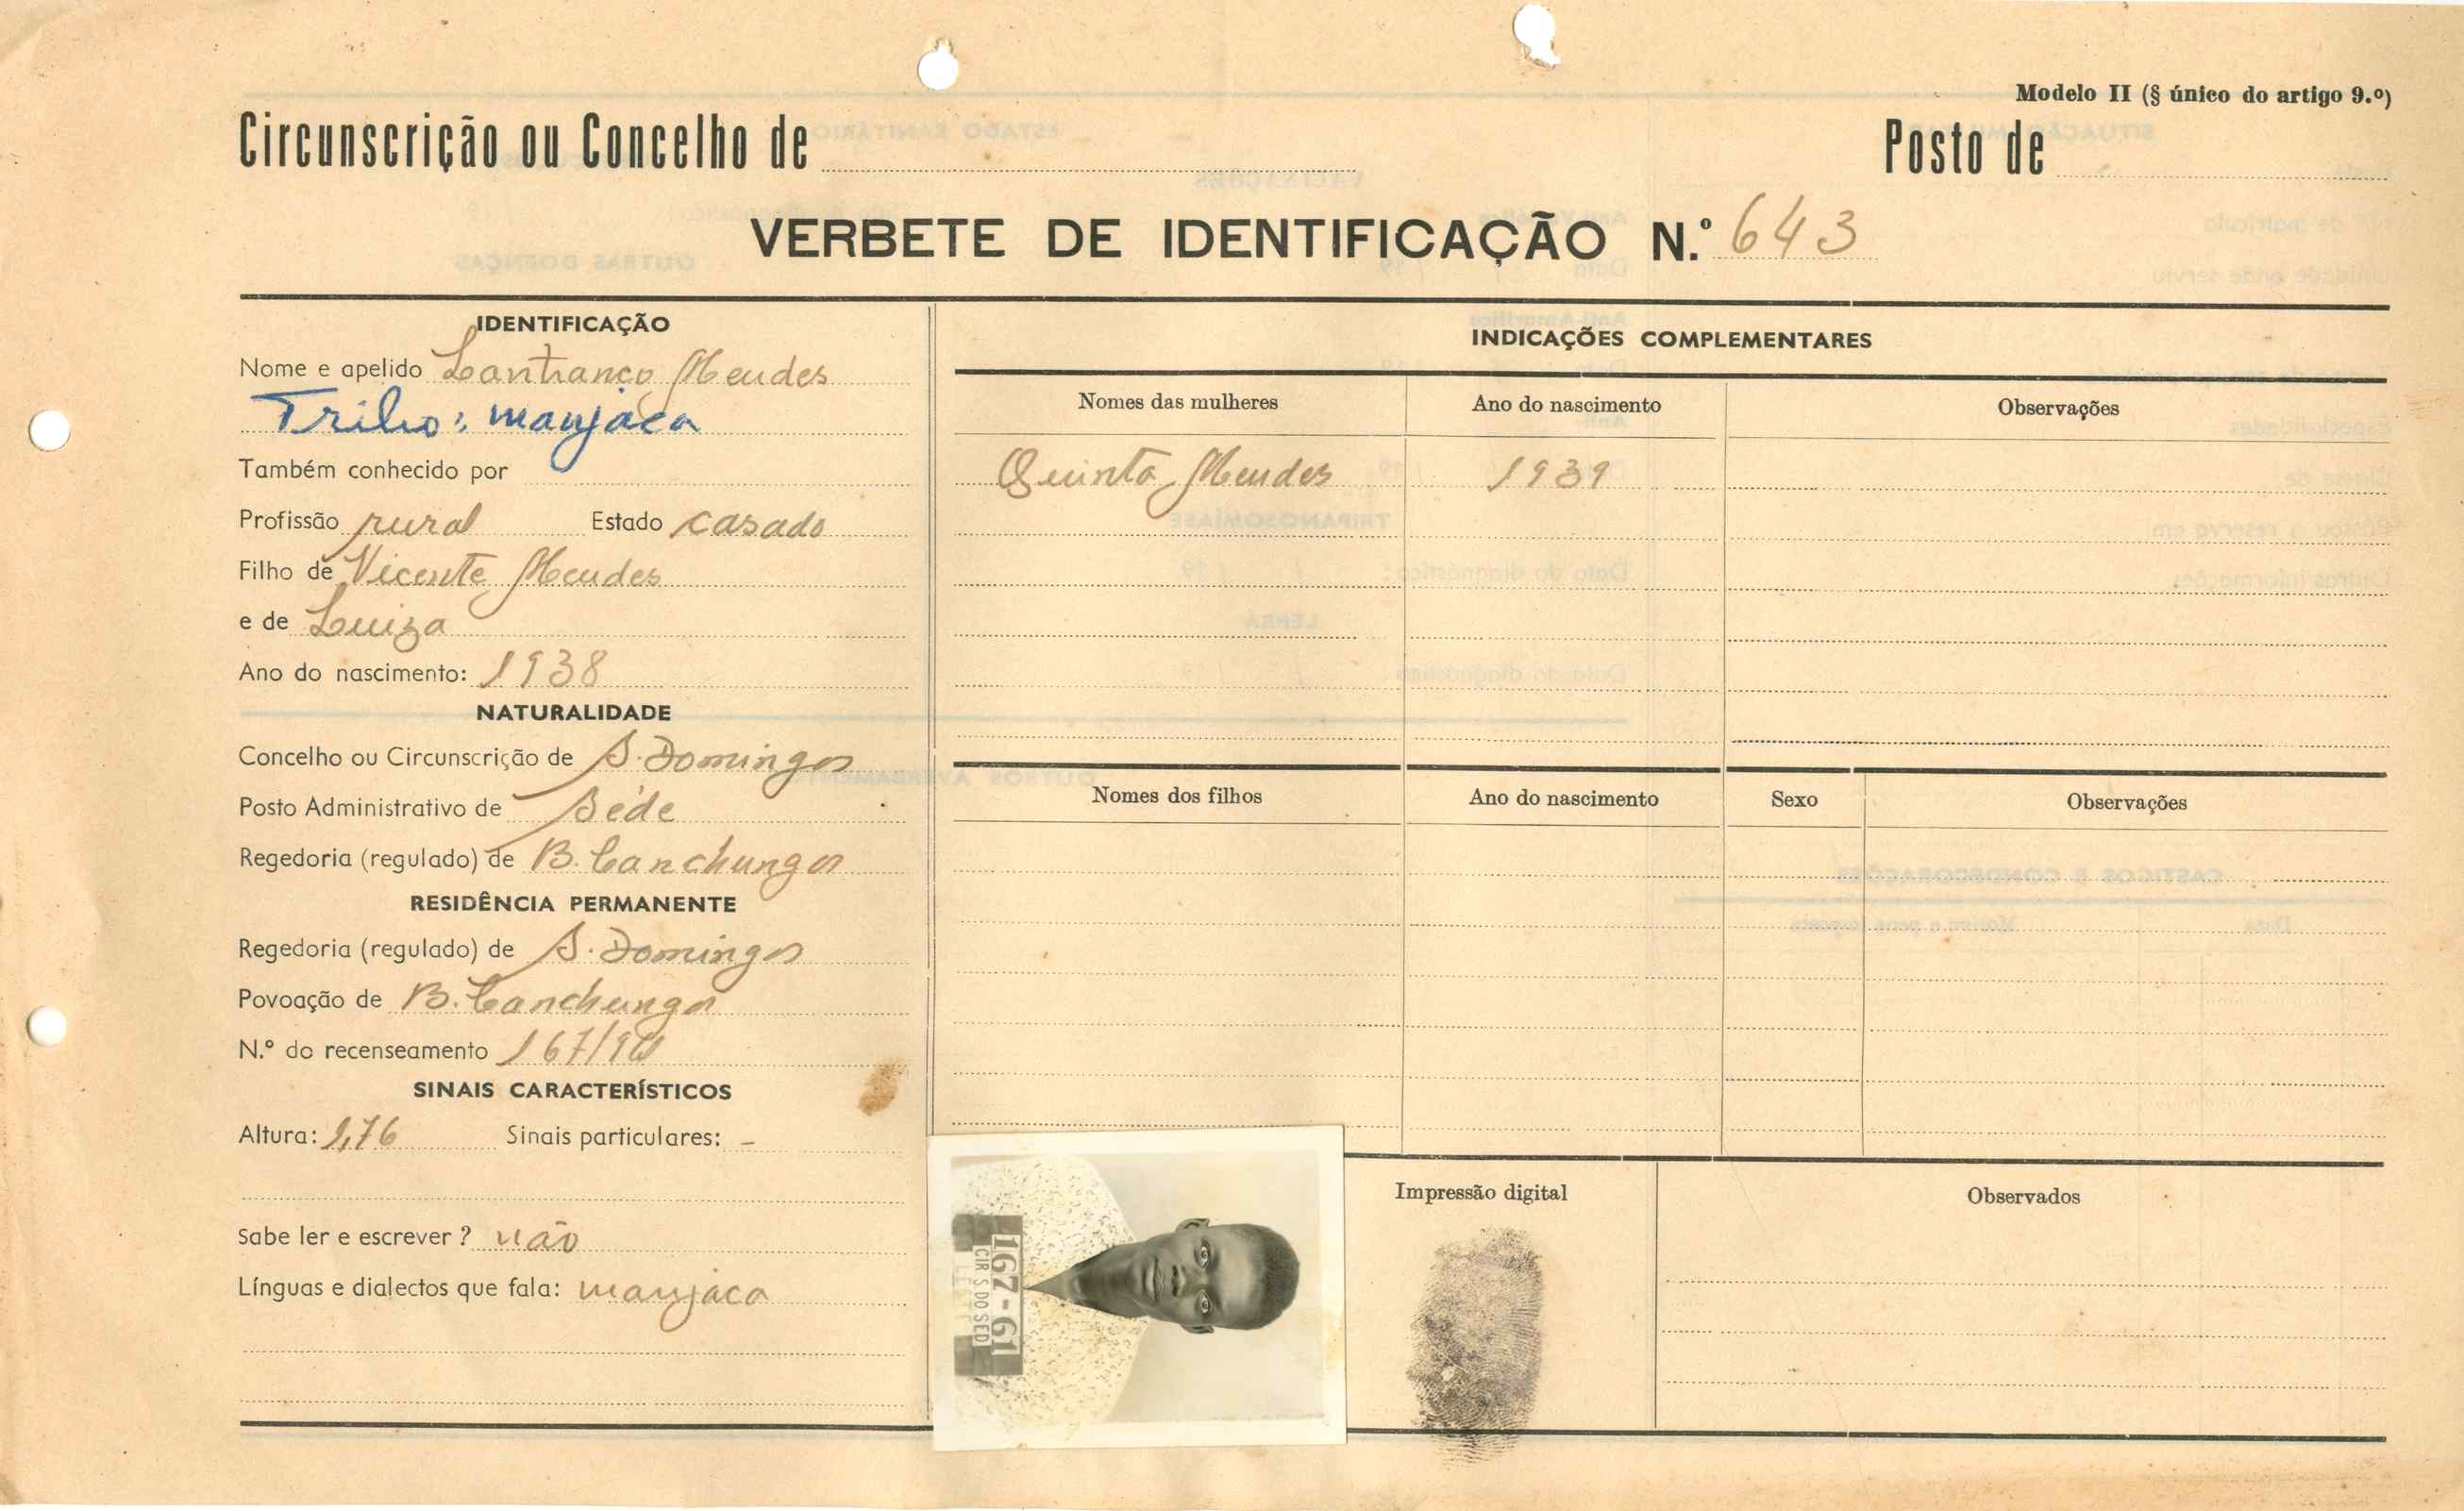 Modelo II (§ único do artigo 9.º)
Circunscrição ou Concelho de
Posto de
VERBETE DE IDENTIFICAÇÃO N.º 643
IDENTIFICAÇÃO
Nome e apelido Lanfranco Mendes
Tribo: manjaca
Também conhecido por
Profissão rural Estado casado
Filho de Vicente Mendes
e de Luiza
Ano do nascimento: 1938
NATURALIDADE
Concelho ou Circunscrição de S. Domingos
Posto Administrativo de Séde
Regedoria (regulado) de B. Canchungo
RESIDÊNCIA PERMANENTE
Regedoria (regulado) de S. Domingos
Povoação de B. Canchungo
N.º do recenseamento
SINAIS CARACTERÍSTICOS
Altura: 1,76 Sinais particulares: -
Sabe ler e escrever? não
Línguas e dialectos que fala: manjaca
INDICAÇÕES COMPLEMENTARES
Nomes das mulheres Ano do nascimento Observações
Quinta Mendes 1939
Nomes dos filhos Ano do nascimento Sexo Observações
167-61
CIR S DO SED
Impressão digital
Observados